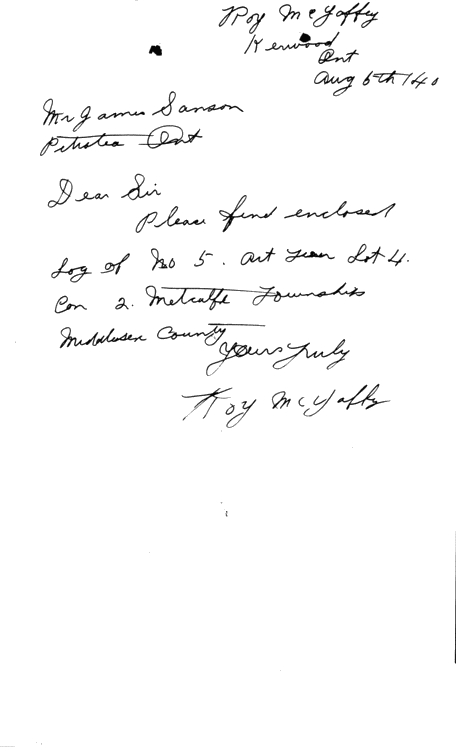 Roy McGaffey
Kerwood
Ont
Aug 6th/40
Mr James Sanson
Petrolea Ont
Dear Sir
Please find enclosed
Log of No 5. Lot 4.
Con 2. Metcalfe Township
Middlesex County
Yours Truly
Roy McGaffey